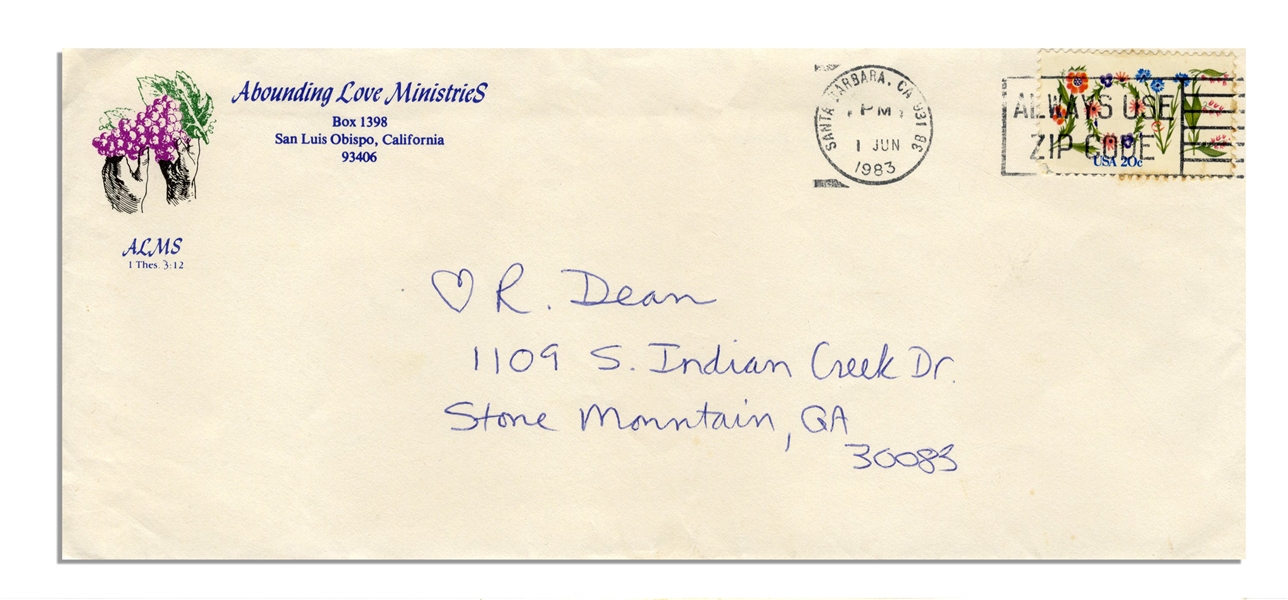 Abounding Love MinistrieS
Box 1398
San Luis Obispo, California
93406
ALMS
1 Thes. 3:12
SANTA BARBARA, CA 931
PM
1 JUN
1983
3B
ALWAYS USE
ZIP CODE
USA 20c
♡ R. Dean
1109 S. Indian Creek Dr.
Stone Mountain, GA
30083